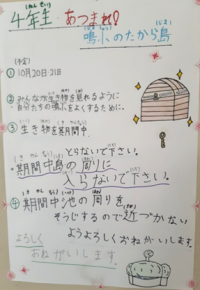 4年生 あつまれ!
鳴小のたから島
(予定)
① 10月20日・21日
② みんなが生き物を見れるように
自分たちの鳴小をよくするために。
③ 生き物を期間中
とらないで下さい。
・期間中島の周りに
入らないで下さい。
④ 期間中池の周りを
そうじするので近づかない
ようよろしくおねがいします。
よろしく
おねがいします。